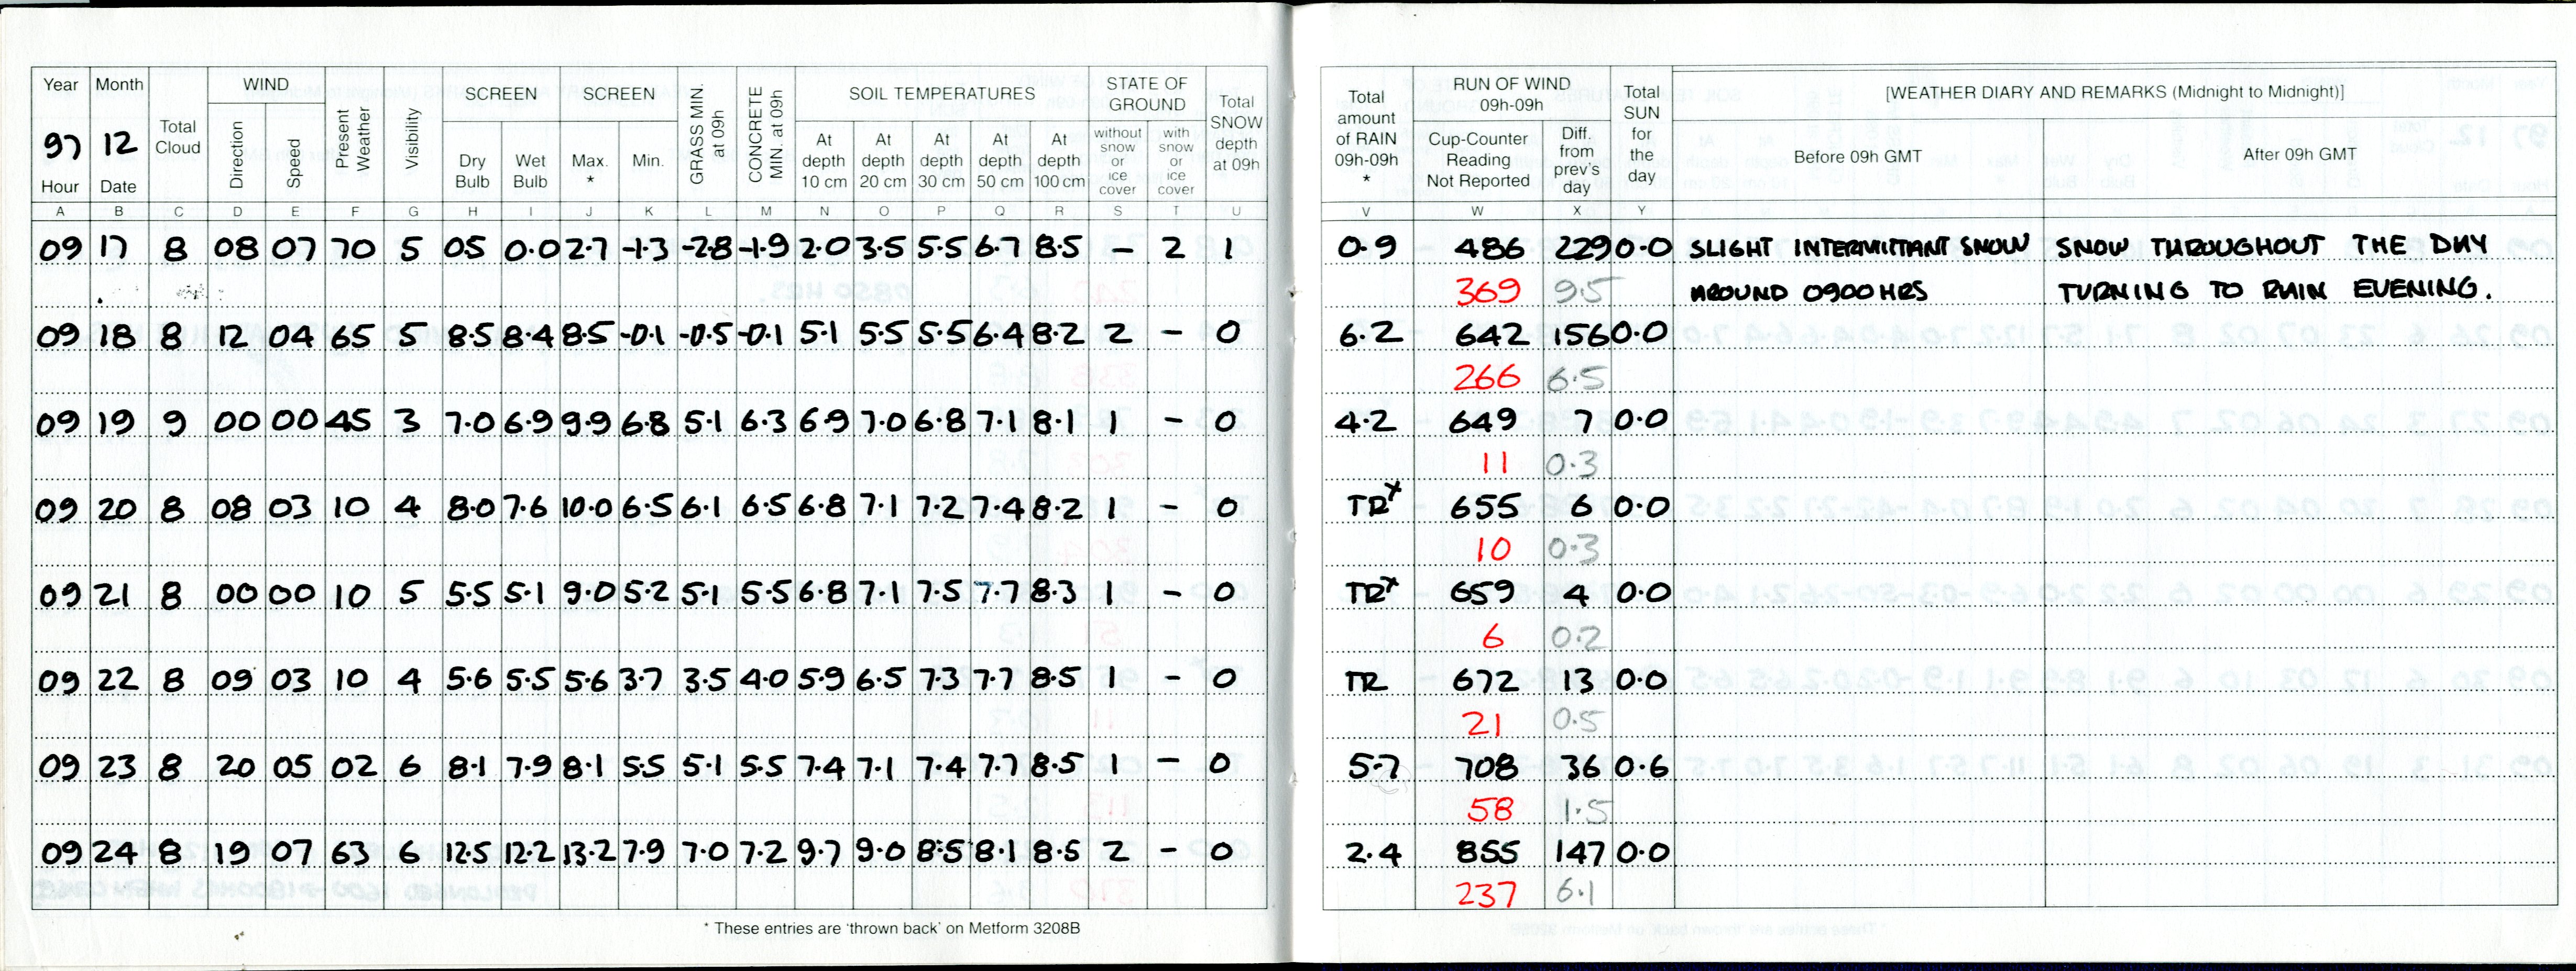 Year Month Total Cloud WIND Present Weather Visibility SCREEN SCREEN GRASS MIN. at 09h CONCRETE MIN. at 09h SOIL TEMPERATURES STATE OF GROUND Total SNOW depth at 09h
97 12 Direction Speed Dry Bulb Wet Bulb Max. * Min. At depth 10 cm At depth 20 cm At depth 30 cm At depth 50 cm At depth 100 cm without snow or ice cover with snow or ice cover
Hour Date
A B C D E F G H I J K L M N O P Q R S T U
09 17 8 08 07 70 5 05 0.0 2.7 -1.3 -2.8 -1.9 2.0 3.5 5.5 6.7 8.5 – 2 1
09 18 8 12 04 65 5 8.5 8.4 8.5 -0.1 -0.5 -0.1 5.1 5.5 5.5 6.4 8.2 2 – 0
09 19 9 00 00 45 3 7.0 6.9 9.9 6.8 5.1 6.3 6.9 7.0 6.8 7.1 8.1 1 – 0
09 20 8 08 03 10 4 8.0 7.6 10.0 6.5 6.1 6.5 6.8 7.1 7.2 7.4 8.2 1 – 0
09 21 8 00 00 10 5 5.5 5.1 9.0 5.2 5.1 5.5 6.8 7.1 7.5 7.7 8.3 1 – 0
09 22 8 09 03 10 4 5.6 5.5 5.6 3.7 3.5 4.0 5.9 6.5 7.3 7.7 8.5 1 – 0
09 23 8 20 05 02 6 8.1 7.9 8.1 5.5 5.1 5.5 7.4 7.1 7.4 7.7 8.5 1 – 0
09 24 8 19 07 63 6 12.5 12.2 13.2 7.9 7.0 7.2 9.7 9.0 8.5 8.1 8.5 2 – 0
* These entries are 'thrown back' on Metform 3208B
Total amount of RAIN 09h-09h * RUN OF WIND 09h-09h Total SUN for the day [WEATHER DIARY AND REMARKS (Midnight to Midnight)]
Cup-Counter Reading Not Reported Diff. from prev's day Before 09h GMT After 09h GMT
V W X Y
0.9 486 229 0.0 SLIGHT INTERMITTANT SNOW SNOW THROUGHOUT THE DAY
369 9.5 AROUND 0900 HRS TURNING TO RAIN EVENING.
6.2 642 156 0.0
266 6.5
4.2 649 7 0.0
11 0.3
TRx 655 6 0.0
10 0.3
TRx 659 4 0.0
6 0.2
TR 672 13 0.0
21 0.5
5.7 708 36 0.6
58 1.5
2.4 855 147 0.0
237 6.1